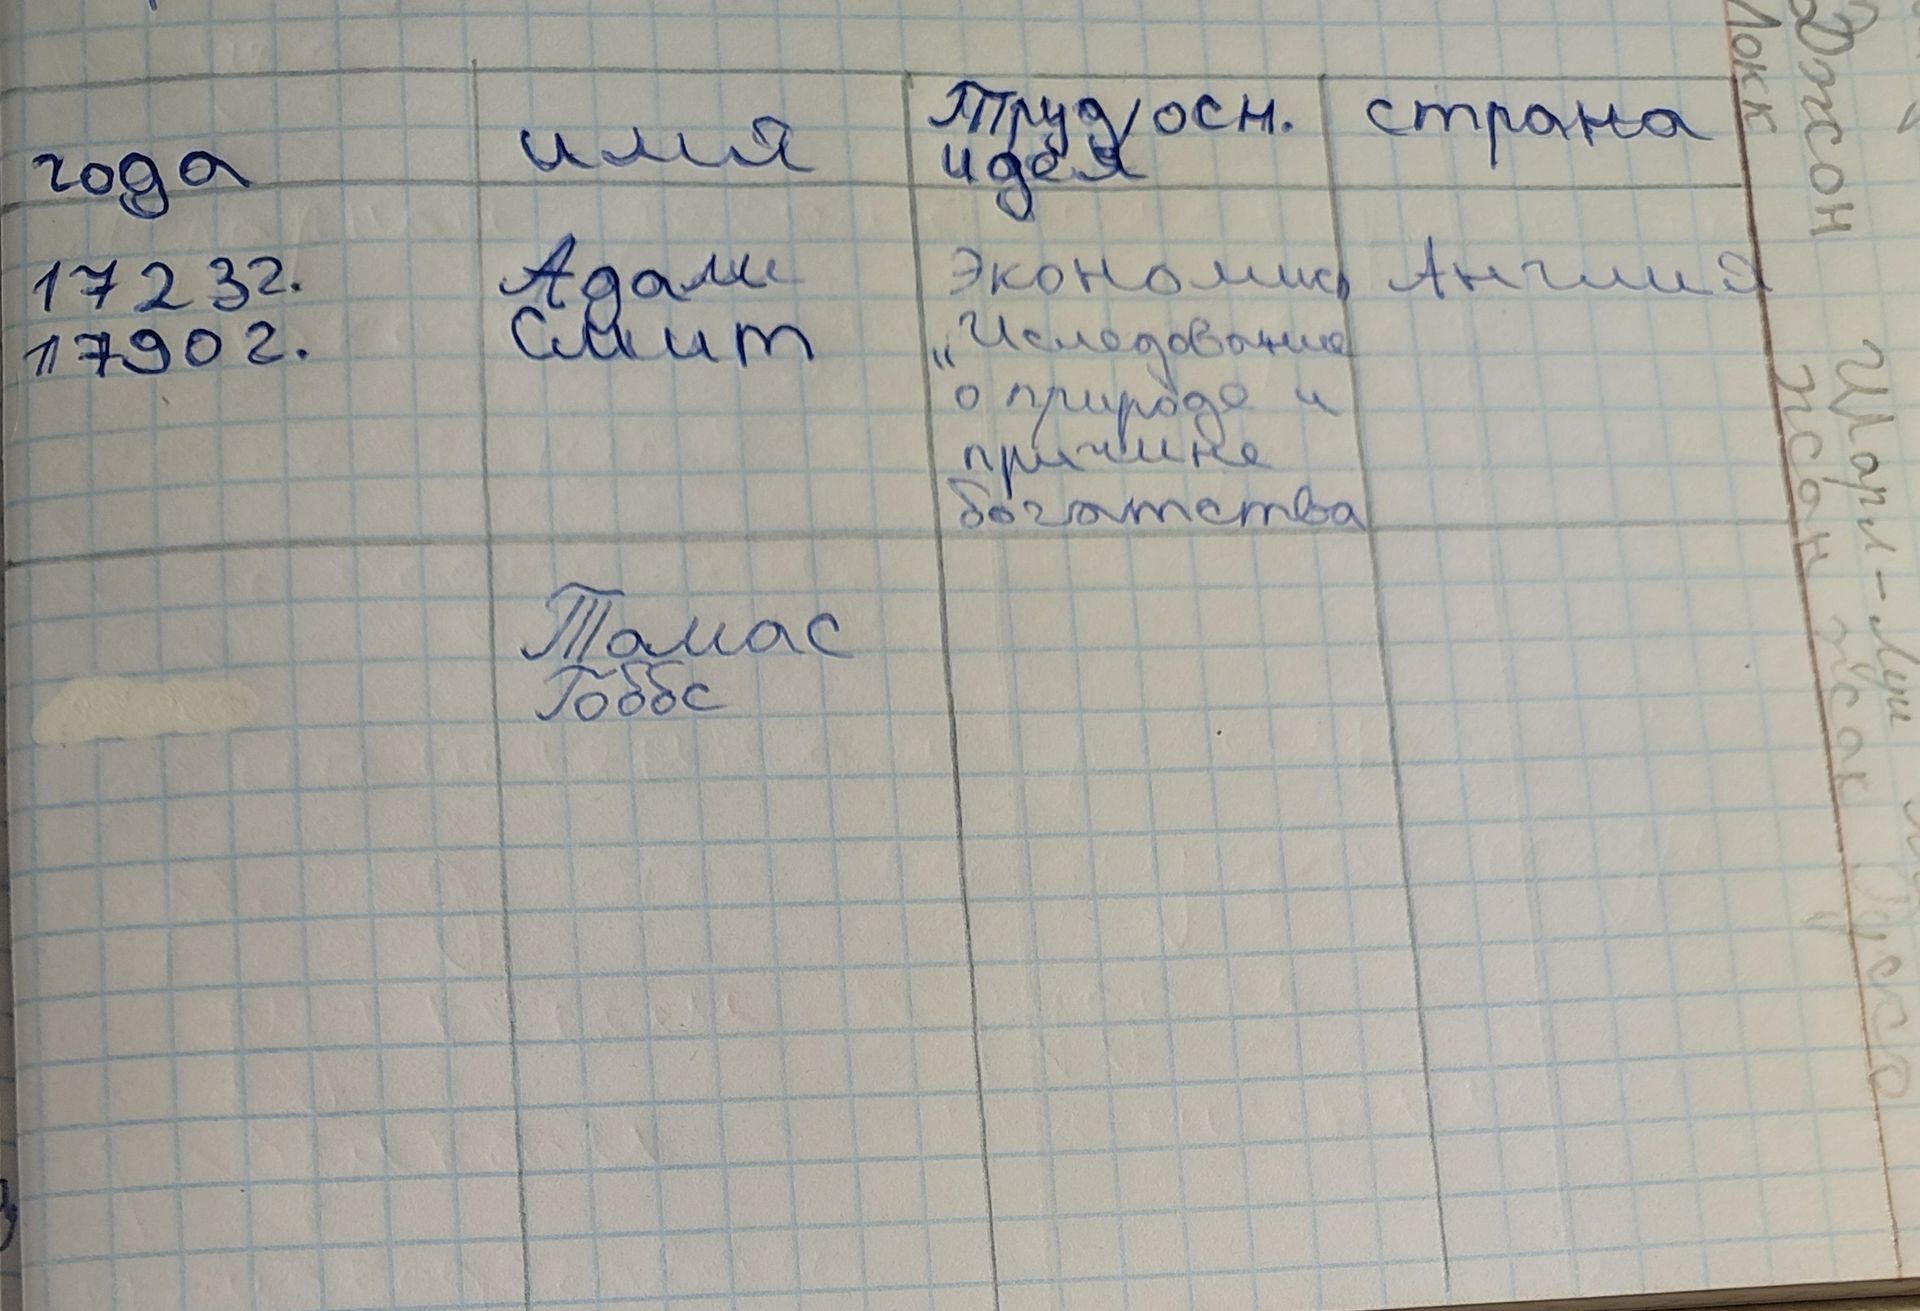 года имя Труд/осн. страна
идея
1723г. Адам Экономика Англия
1790г. Смит „Иследование
о природе и
причине
богатства
Томас
Гоббс
Джон
Локк
Шарл-Луи
Жан Жак Руссо